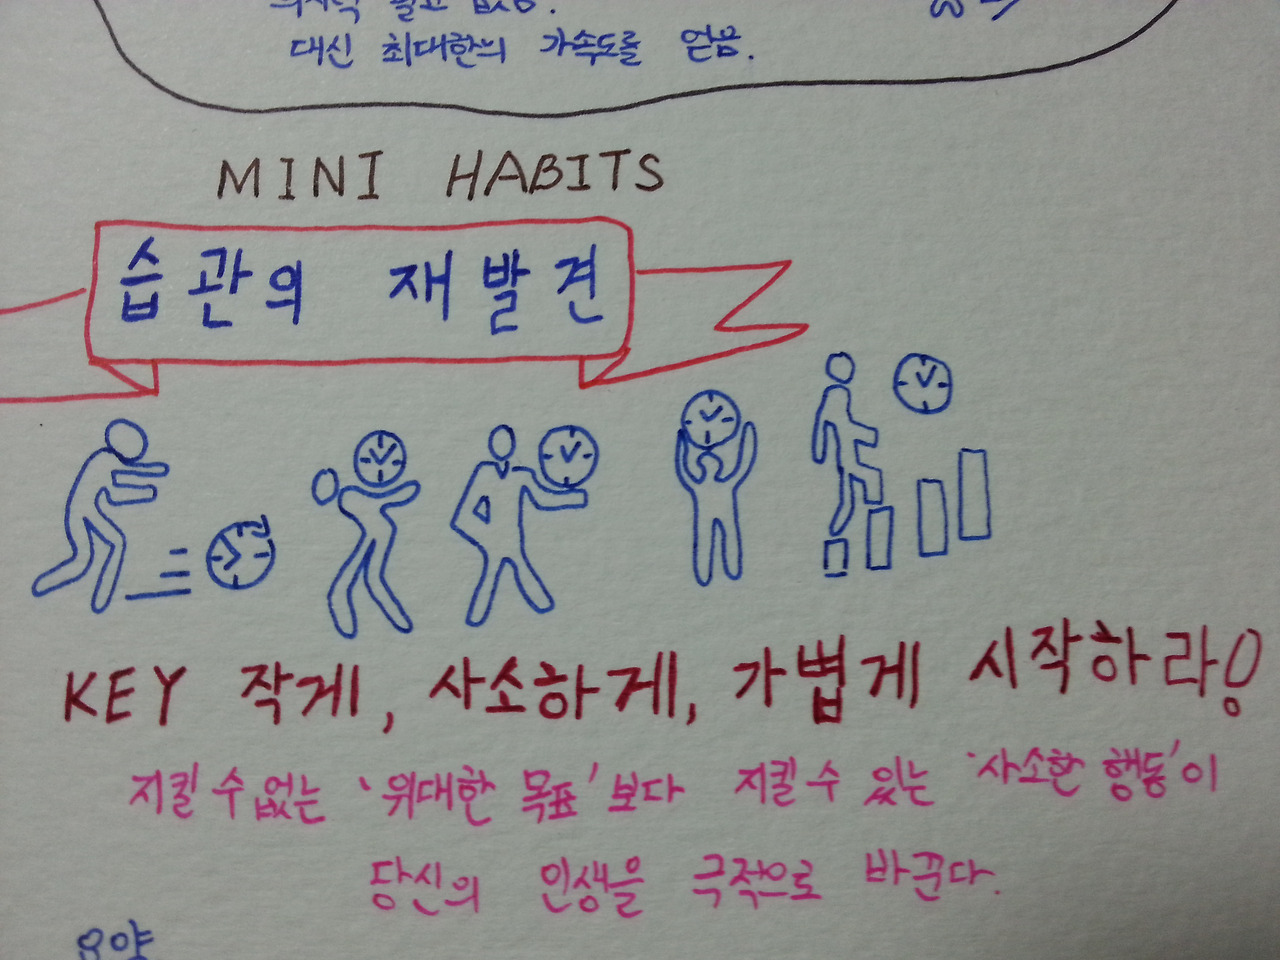 대신 최대한의 가속도를 얻음.
MINI HABITS
습관의 재발견
KEY 작게, 사소하게, 가볍게 시작하라!
지킬 수 없는 '위대한 목표'보다 지킬 수 있는 '사소한 행동'이
당신의 인생을 극적으로 바꾼다.
요약